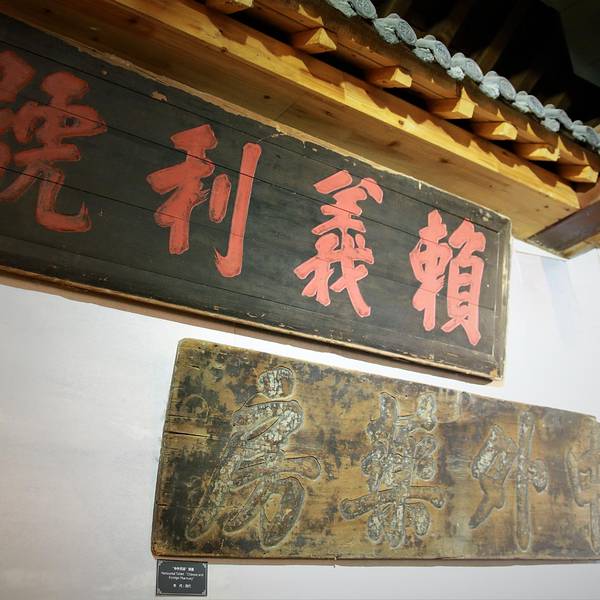 賴義利號
中外藥房
"中外药房"
Horizontal Tablet "Chinese and
Foreign Pharmacy"